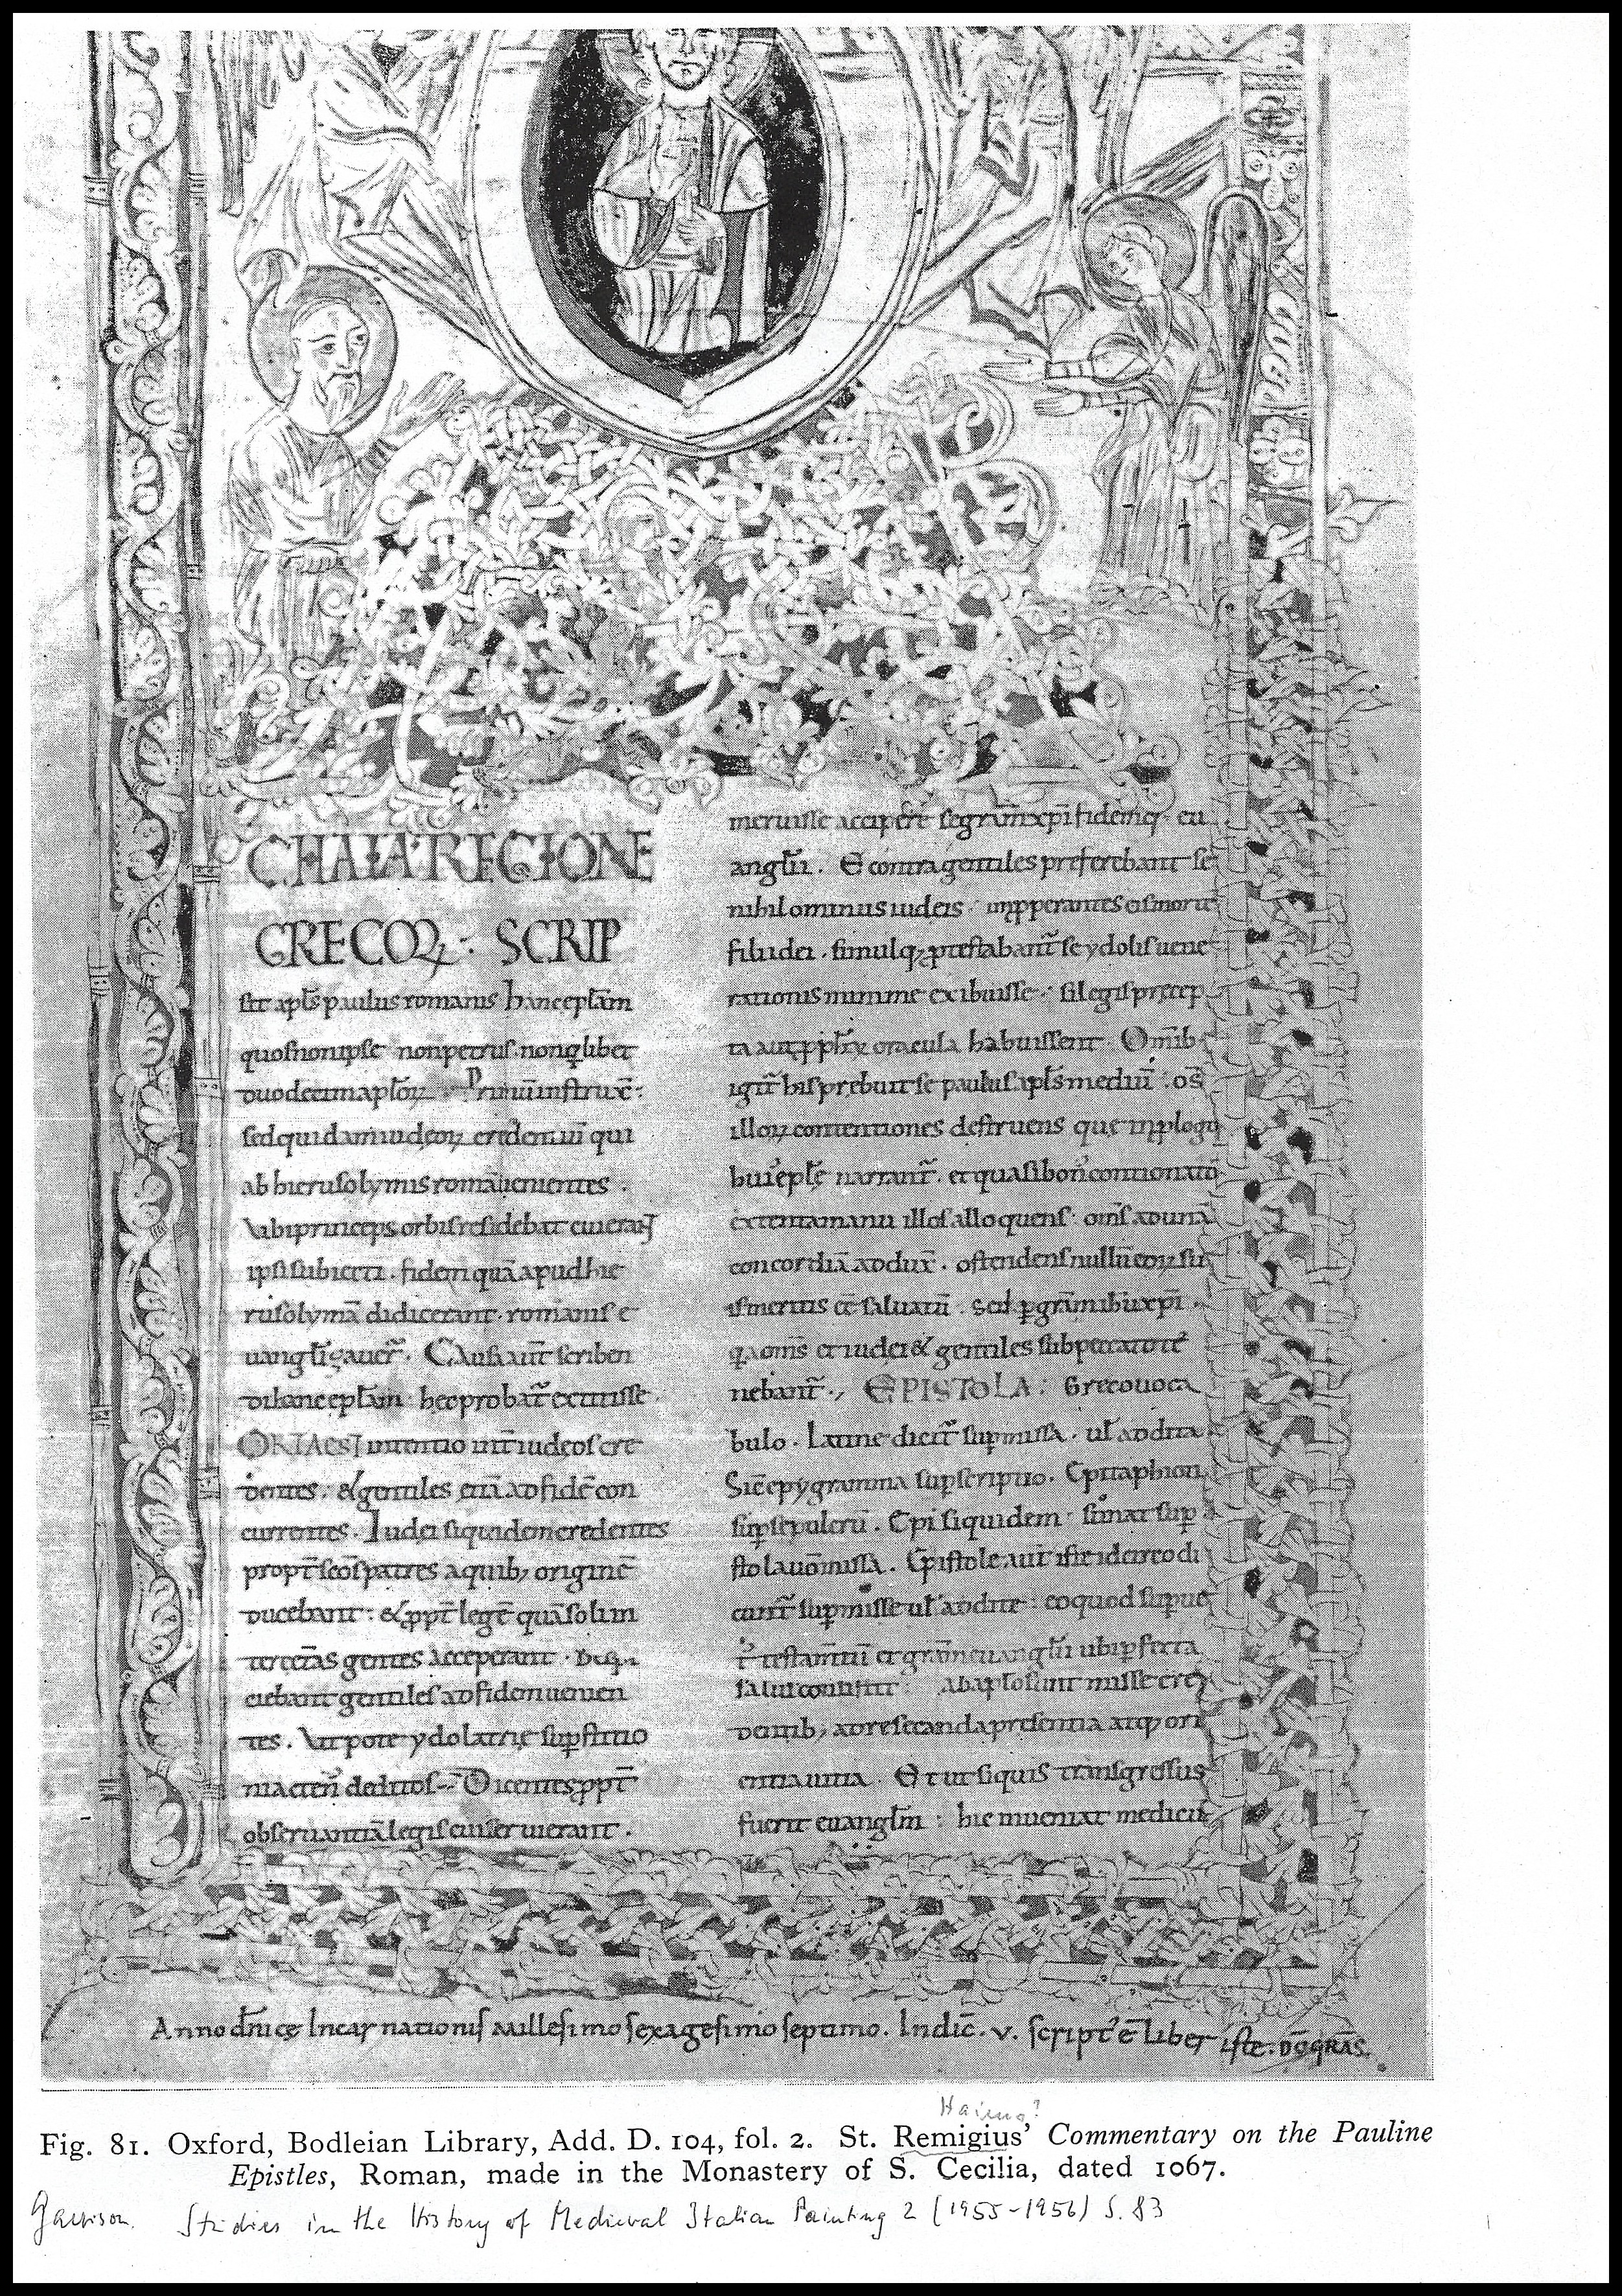 CHAIA REGIONE
GRECOꝜ : SCRIP
sit apl̄s paulus romanis hanc epl̄am
quos non ipse non petrus non q̄libet
duodecim aplōꝝ Primū instrux̄ :
sed quidam iudeoꝝ credentiū qui
ab hierusolymis romā uenientes .
Vbi princeps orbis residebat cui erant
ipsi subiecti . fidem quā apud hie
rusolymā didicerant . romanis e
uangl̄izauer̄ . Causa aut̄ scriben
di hanc epl̄am hec probat̄ extitisse .
ORTA EST intentio int̄ iudeos cre
dentes . & gentiles etiā ad fidē con
currentes . Iudei siquidem credentes
propt̄ scōs patres a quib; originē
ducebant : & ꝓpt̄ legē quā soli in
ter cet̄as gentes acceperant .
ciebant gentiles ad fidem uenien
tes . Vt pote ydolatrię suꝑstitio
ni acten̄ deditos Dicentes ꝓpt̄
obseruantiā legis cui seruierant .
meruisse accipere se gr̄am xp̄i fidemq; eu
angl̄ii . E contra gentiles preferebant se
nihilominus iudeis . inꝓperantes eis morte
filii dei . simulq; ꝓtestabant̄ se ydolis uene
rationis minime exibuisse : si legis precep
ta aut ꝓph̄ꝝ oracula habuissent . Omib;
igit̄ his prebuit se paulus apl̄s mediū . os̄
illoꝝ contentiones destruens que in ꝓlogo
hui' epl̄ę narrant̄ . et quasi bon' contionator
extenta manu illos alloquens : om̄s ad unā
concordiā addux̄ . ostendens nullū eoꝝ su
is meritis eē saluatū . sed ꝑ gr̄am ihū xp̄i .
q̄a om̄s et iudei & gentiles sub peccato te
nebant̄ . EPISTOLA : Greco uoca
bulo . Latine dicit̄ suꝑmissa . ul̄ addita
Sic epygramma suꝑscriptio . Epitaphion
suꝑ sepulcrū . Epi siquidem sonat suꝑ
stola uō missa . Epistole aut̄ iste idcirco di
cunt̄ suꝑmisse ul̄ addite : eo quod suꝑ ue
testamtū et gr̄am euangl̄ii ubi ꝑfecta
salus consistit : ab apl̄o sunt misse cre
dentib; ad resecanda presentia atq; ori
entia uitia . Et ut siquis transgressus
fuerit euangl̄m : hic inueniat medicū
Anno dn̄ice Incarnationis Millesimo sexagesimo septimo . Indic̄ . v . script' ē Liber iste . DŌ GRĀS .
Haimo?
Fig. 81. Oxford, Bodleian Library, Add. D. 104, fol. 2. St. Remigius' Commentary on the Pauline
Epistles, Roman, made in the Monastery of S. Cecilia, dated 1067.
Garrison. Studies in the History of Medieval Italian Painting 2 (1955-1956) S. 83